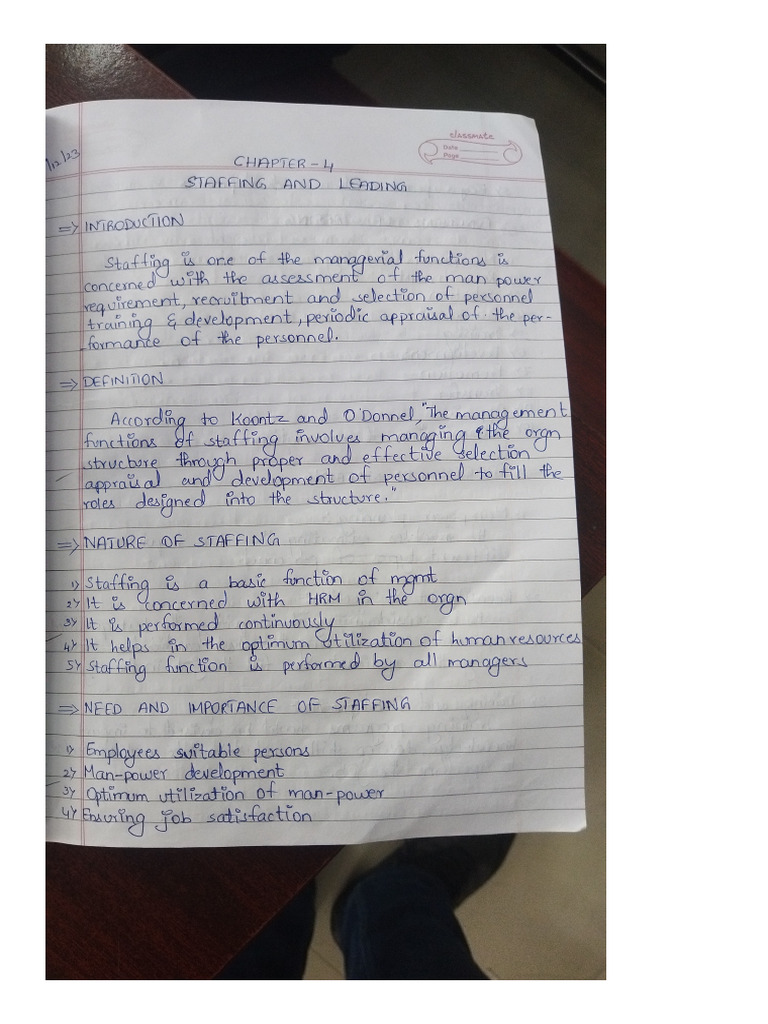 classmate
Date
Page
/12/23
CHAPTER-4
STAFFING AND LEADING
=> INTRODUCTION
Staffing is one of the managerial functions is
concerned with the assessment of the man power
requirement, recruitment and selection of personnel
training & development, periodic appraisal of the per-
-formance of the personnel.
=> DEFINITION
According to Koontz and O'Donnel, "The management
functions of staffing involves managing the orgn
structure through proper and effective selection
appraisal and development of personnel to fill the
roles designed into the structure."
=> NATURE OF STAFFING
1) Staffing is a basic function of mgmt
2) It is concerned with HRM in the orgn
3) It is performed continuously
4) It helps in the optimum utilization of human resources
5) Staffing function is performed by all managers
=> NEED AND IMPORTANCE OF STAFFING
1) Employees suitable persons
2) Man-power development
3) Optimum utilization of man-power
4) Ensuring job satisfaction